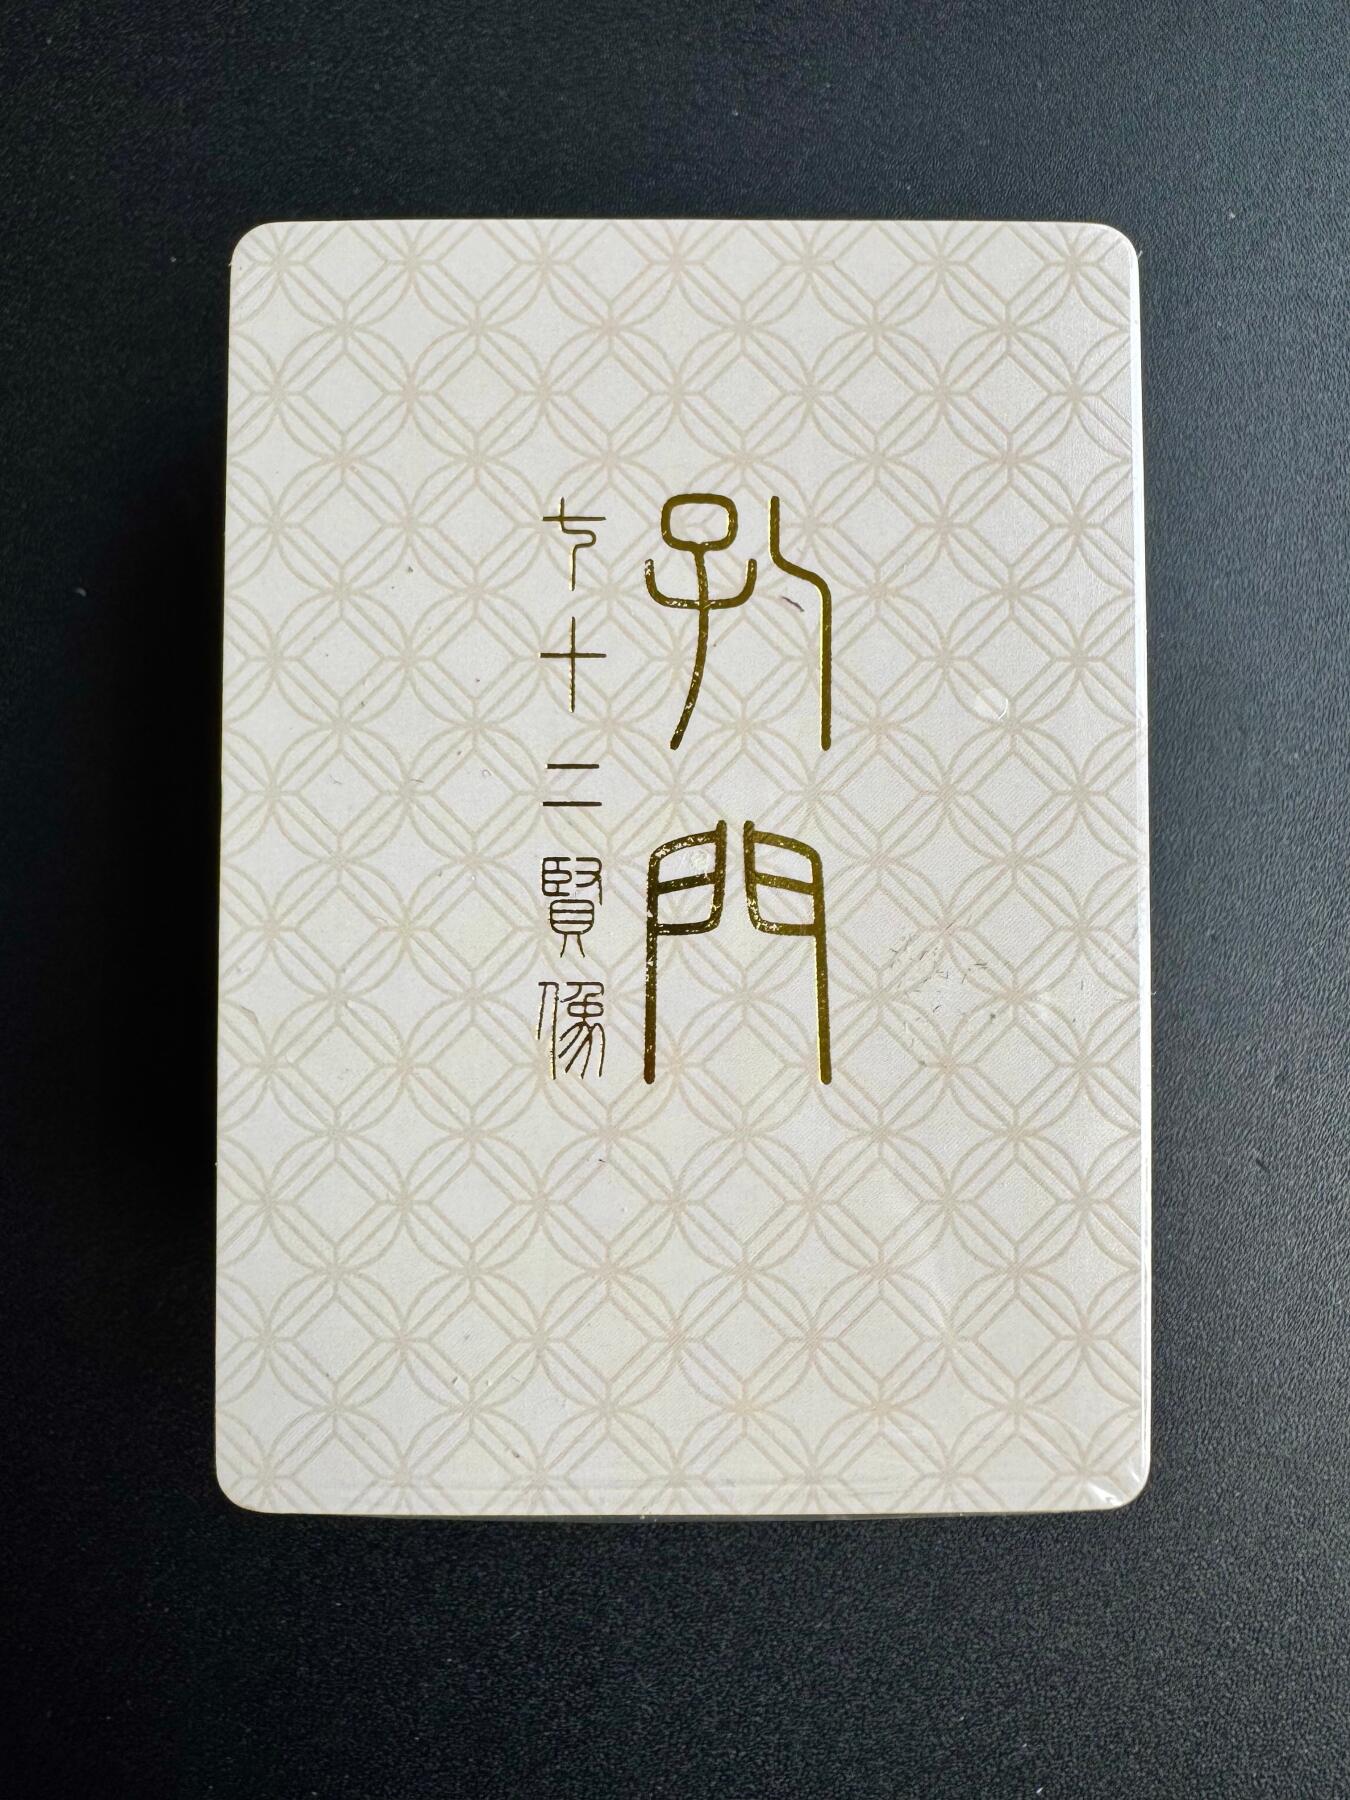 孔門
七十二賢像